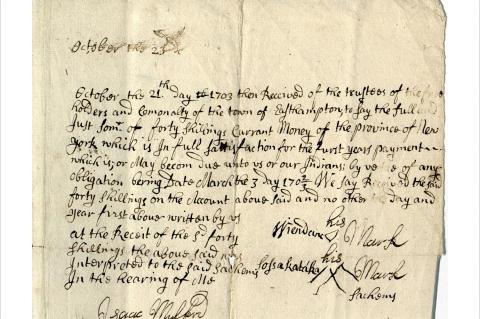 October the 21
October the 21th day 1703 then Received of the trustees of the free
holders and Comonalty of the town of Easthampton to say the full and
Just Som: of forty shillings Currant Money of the province of New
york which is In full sattisfaction for the Last years payment
which is, or May becom due unto us or our Indians; by vertue of any
obligation bering Date March the 3 day 170 2/3 We say Received the said
forty shillings on the Account above said and no other the day and
year first above written by us
at the Receit of the sd forty
shillings the above said was
Interpreted to the said Sachems
In the hearing of Me
his
Mark
his
Sassakataka Mark
Sachems
Isaac